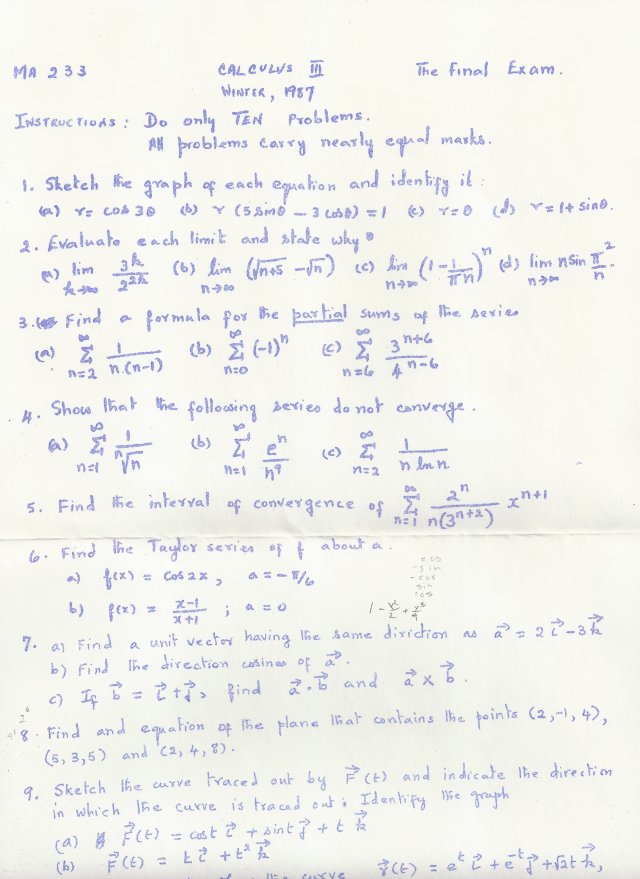 MA 233 CALCULUS III The Final Exam.
WINTER, 1987
INSTRUCTIONS: Do only TEN Problems.
All problems carry nearly equal marks.
1. Sketch the graph of each equation and identify it:
(a) r = cos 3θ (b) r (5 sinθ – 3 cosθ) = 1 (c) r = θ (d) r = 1 + sinθ.
2. Evaluate each limit and state why
(a) lim k→∞ 3^k / 2^{2k} (b) lim n→∞ (√n+5 – √n) (c) lim n→∞ (1 – 1/πn)^n (d) lim n→∞ n sin π^2/n.
3. Find a formula for the partial sums of the series
(a) ∞ Σ n=2 1/n.(n-1) (b) ∞ Σ n=0 (-1)^n (c) ∞ Σ n=6 3^{n+6} / 4^{n-6}
4. Show that the following series do not converge.
(a) ∞ Σ n=1 1/ⁿ√n (b) ∞ Σ n=1 e^n / n^9 (c) ∞ Σ n=2 1 / n ln n
5. Find the interval of convergence of ∞ Σ n=1 2^n / n(3^{n+2}) x^{n+1}
6. Find the Taylor series of f about a.
a) f(x) = cos 2x, a = – π/6
b) f(x) = x-1 / x+1 ; a = 0
cos
-sin
-cos
sin
cos
7. a) Find a unit vector having the same diriction as a⃗ = 2 i⃗ – 3 k⃗
b) Find the direction cosines of a⃗.
c) If b⃗ = i⃗ + j⃗, find a⃗ . b⃗ and a⃗ x b⃗.
8. Find and equation of the plane that contains the points (2,-1, 4),
(5, 3, 5) and (2, 4, 8).
9. Sketch the curve traced out by F⃗(t) and indicate the direction
in which the curve is traced out. Identify the graph
(a) F⃗(t) = cost i⃗ + sint j⃗ + t k⃗
(b) F⃗(t) = t i⃗ + t^2 k⃗
the curve r⃗(t) = e^t i⃗ + e^{-t} j⃗ + √2 t k⃗,